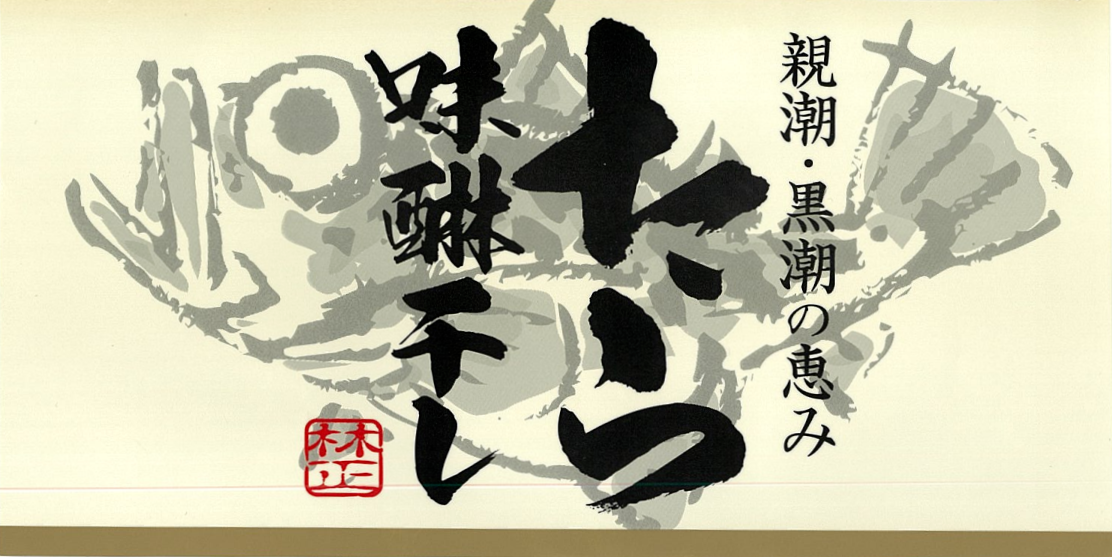 親潮・黒潮の恵み
たらつ
味醂干し